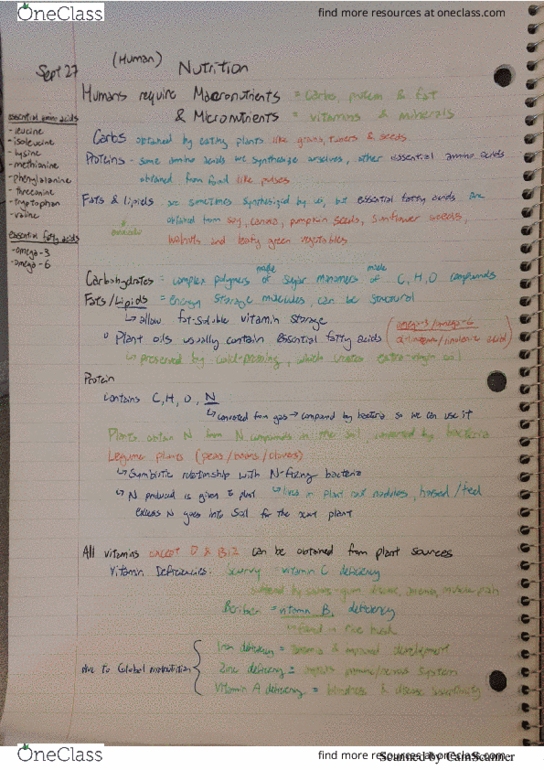 OneClass
find more resources at oneclass.com
Sept 27
(Human) Nutrition
Humans require Macronutrients = Carbs, protein & fat
& Micronutrients = vitamins & minerals
essential amino acids
- leucine
- isoleucine
- lysine
- methionine
- phenylalanine
- threonine
- tryptophan
- valine
essential fatty acids
- omega-3
- omega-6
Carbs obtained by eating plants like grains, tubers & seeds.
Proteins - some amino acids we synthesize ourselves, other essential amino acids
obtained from food like pulses
Fats & lipids are sometimes synthesized by us, but essential fatty acids are
obtained from soy, canola, pumpkin seeds, sunflower seeds,
avocado
walnuts and leafy green vegetables.
Carbohydrates = complex polymers made of sugar monomers made of C, H, O compounds
Fats/Lipids = energy storage molecules, can be structural
↳ allow fat-soluble vitamin storage
Plant oils usually contain essential fatty acids (omega-3/omega-6
linolenic/linoleic acid)
↳ preserved by cold-pressing, which creates extra-virgin oil
Protein
contains C, H, O, N
↳ converted from gas → compound by bacteria so we can use it
Plants obtain N from N compounds in the soil converted by bacteria
Legume plants (peas/beans/cloves)
↳ Symbiotic relationship with N-fixing bacteria
↳ N produced is given to plant ↳ lives in plant root nodules, housed/feed
excess N goes into soil for the next plant
All vitamins except D & B12 can be obtained from plant sources
Vitamin Deficiencies: Scurvy = vitamin C deficiency
suffered by sailors - gum disease, anemia, muscle pain
Beriberi = vitamin B1 deficiency
↳ found in rice husk
due to Global malnutrition
Iron deficiency = anemia & impaired development
Zinc deficiency = immune/nervous system
Vitamin A deficiency = blindness & disease
OneClass
find more resources at oneclass.com
Scanned by CamScanner